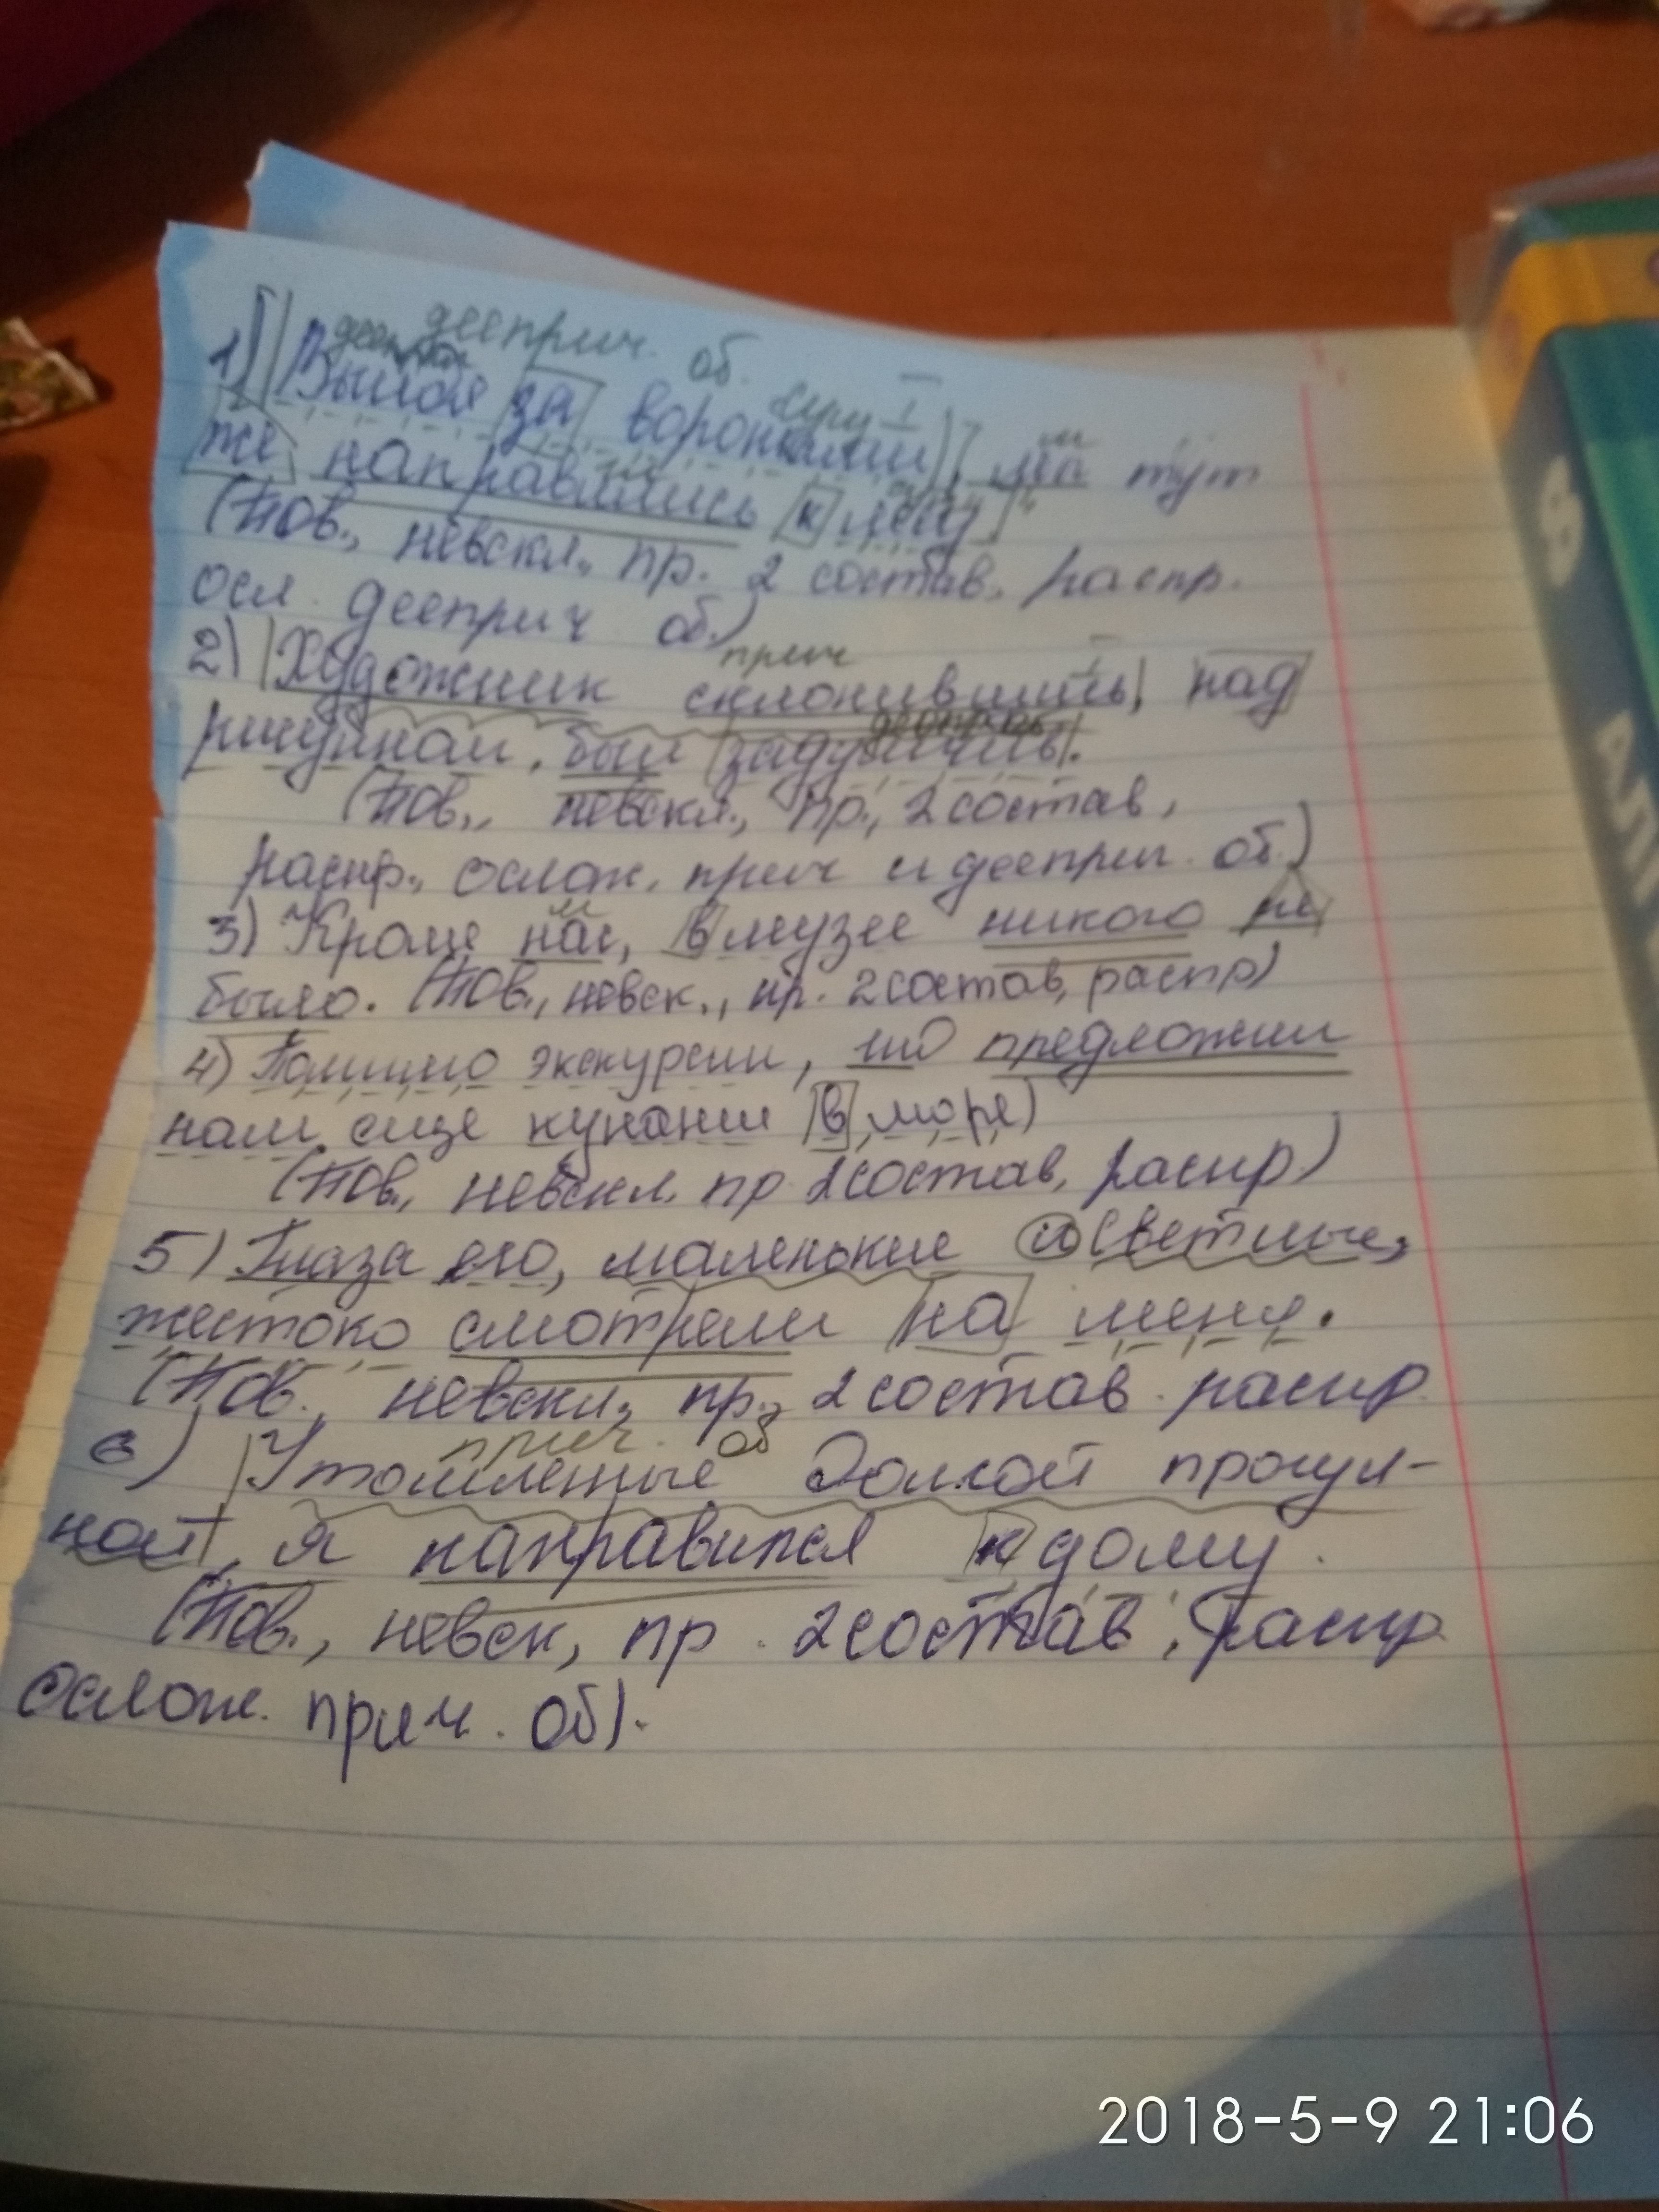 дееприч. об.
1) Выйдя за воротами, мы тут
же направились к лесу.
(Пов., невоскл., пр. 2 состав, распр.
осл. дееприч об.)
прич
2) Художник склонившись, над
рисунком, был задумчивы.
(Пов., невоскл., пр., 2 состав,
распр., ослож. прич и дееприч. об.)
3) Кроме нас, в музее никого не
было. (Пов., невск., пр. 2 состав, распр)
4) Помимо экскурсии, предложили
нам еще купание в море)
(Пов., невскл. пр 2 состав, распр)
5) Глаза его, маленькие и светлые,
жестоко смотрели на меня.
(Пов., невскл., пр., 2 состав. распр
прич. об
6) Утомленные долгой прогул-
кой, я направился к дому.
(Пов., невск, пр. 2 состав, распр
ослож. прич. об).
8
АЛ
2018-5-9 21:06